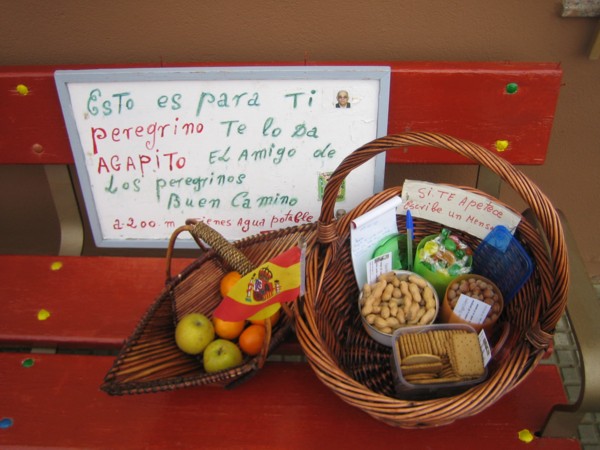 Esto es para Ti
peregrino Te lo Da
AGAPITO El Amigo de
Los peregrinos
Buen Camino
a 200 m Tienes Agua potable
Si TE Apetece
Escribe un Mensa